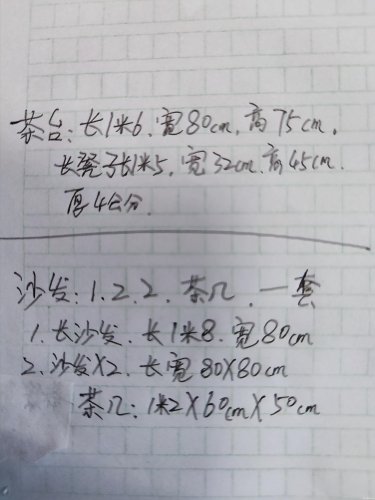 茶台:长1米6.宽80cm.高75cm.
长凳子长1米5.宽32cm.高45cm.
厚4公分.
沙发:1.2.2.茶几.一套
1.长沙发.长1米8.宽80cm
2.沙发X2.长宽80X80cm
茶几:1米2X60cmX50cm